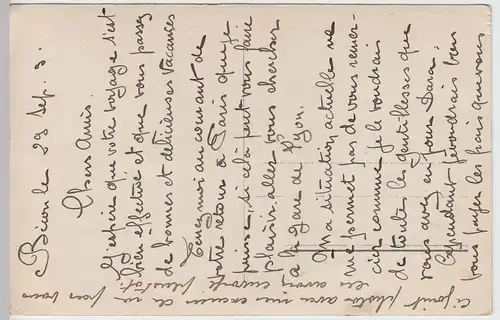 Biron le 29 Sep. 3.
Chers Amis.
J'espère que votre voyage s'est
bien effectué et que vous passez
de bonnes et délicieuses vacances
Tenez moi au courant de
votre retour à Paris que je
puisse, si celà peut vous faire
plaisir aller vous chercher
à la gare de Lyon.
Ma situation actuelle ne
me permet pas de vous remer-
cier comme je le voudrais
de toutes les gentillesses que
vous avez eu pour Dara
Cependant je voudrais bien
vous payer les frais que vous
Ci joint photos avec mes excuses de ne pas vous
les avoir envoyé plus tôt.